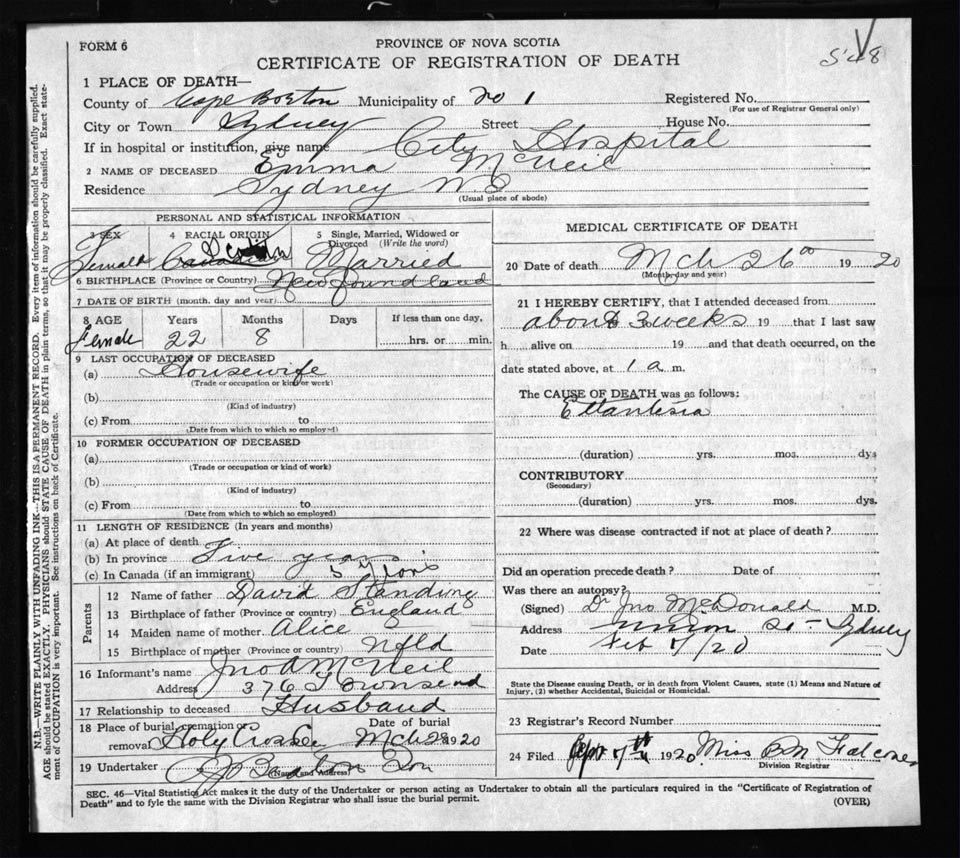 FORM 6
PROVINCE OF NOVA SCOTIA
548
CERTIFICATE OF REGISTRATION OF DEATH
1 PLACE OF DEATH—
County of Cape Breton Municipality of No 1 Registered No.
(For use of Registrar General only)
City or Town Sydney Street House No.
If in hospital or institution, give name City Hospital
2 NAME OF DECEASED Emma McNeil
Residence Sydney N S
(Usual place of abode)
PERSONAL AND STATISTICAL INFORMATION
3 SEX 4 RACIAL ORIGIN 5 Single, Married, Widowed or Divorced (Write the word)
Female Married
6 BIRTHPLACE (Province or Country) New Foundland
7 DATE OF BIRTH (month, day and year)
8 AGE Years Months Days If less than one day,
Female 22 8 hrs. or min.
9 LAST OCCUPATION OF DECEASED
(a) Housewife
(Trade or occupation or kind or work)
(b)
(Kind of industry)
(c) From to
(Date from which to which so employed)
10 FORMER OCCUPATION OF DECEASED
(a)
(Trade or occupation or kind of work)
(b)
(Kind of industry)
(c) From to
(Date from which to which so employed)
11 LENGTH OF RESIDENCE (In years and months)
(a) At place of death
(b) In province Five years
(c) In Canada (if an immigrant) 5 years
Parents
12 Name of father David Standing
13 Birthplace of father (Province or country) England
14 Maiden name of mother Alice
15 Birthplace of mother (Province or country) Nfld
16 Informant's name Jno A McNeil
Address 376 Townsend
17 Relationship to deceased Husband
18 Place of burial, cremation or removal Holy Cross Date of burial Mch 28 1920
19 Undertaker Beaton Son
(Name and Address)
MEDICAL CERTIFICATE OF DEATH
20 Date of death Mch 26th 1920
(Month, day and year)
21 I HEREBY CERTIFY, that I attended deceased from
about 3 weeks 19 that I last saw
h alive on 19 and that death occurred, on the
date stated above, at 1 a m.
The CAUSE OF DEATH was as follows:
(duration) yrs. mos. dys
CONTRIBUTORY
(Secondary)
(duration) yrs. mos. dys.
22 Where was disease contracted if not at place of death?
Did an operation precede death? Date of
Was there an autopsy?
(Signed) Dr Jno McDonald M.D.
Address Union St Sydney
Date Feb 7/20
State the Disease causing Death, or in death from Violent Causes, state (1) Means and Nature of
Injury, (2) whether Accidental, Suicidal or Homicidal.
23 Registrar's Record Number
24 Filed Apr 7th 1920 Miss B M Falconer
Division Registrar
SEC. 46—Vital Statistics Act makes it the duty of the Undertaker or person acting as Undertaker to obtain all the particulars required in the "Certificate of Registration of
Death" and to fyle the same with the Division Registrar who shall issue the burial permit.
(OVER)
N.B.—WRITE PLAINLY WITH UNFADING INK—THIS IS A PERMANENT RECORD. Every item of information should be carefully supplied.
AGE should be stated EXACTLY. PHYSICIANS should STATE CAUSE OF DEATH in plain terms, so that it may be properly classified. Exact state-
ment of OCCUPATION is very important. See instructions on back of Certificate.